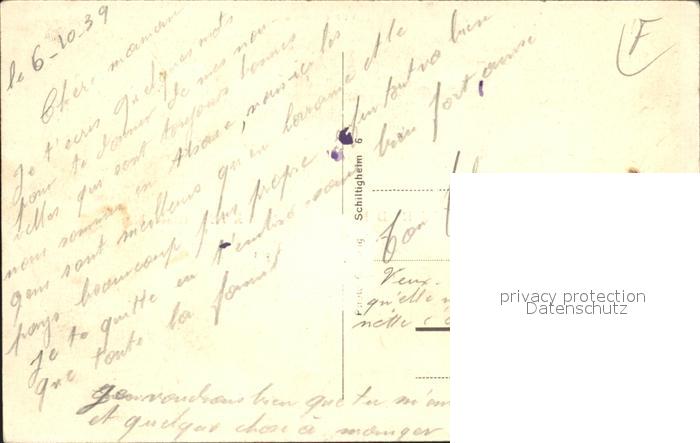 le 6-10.39
Chère maman
Je t'ecris quelques mots
pour te donner de mes nou-
velles qui sont toujours bonnes
nous sommes en Alsace, nous ici les
gens sont meilleurs qu'en Lorraine et le
pays beaucoup plus propre enfin tout va bien
Je te quitte en t'embrassant bien fort ainsi
que toute la famille
ton
Veux-
qu'elle
nette
Je voudrais bien que tu m'en
et quelque chose à manger
F
Schiltigheim 6
privacy protection
Datenschutz